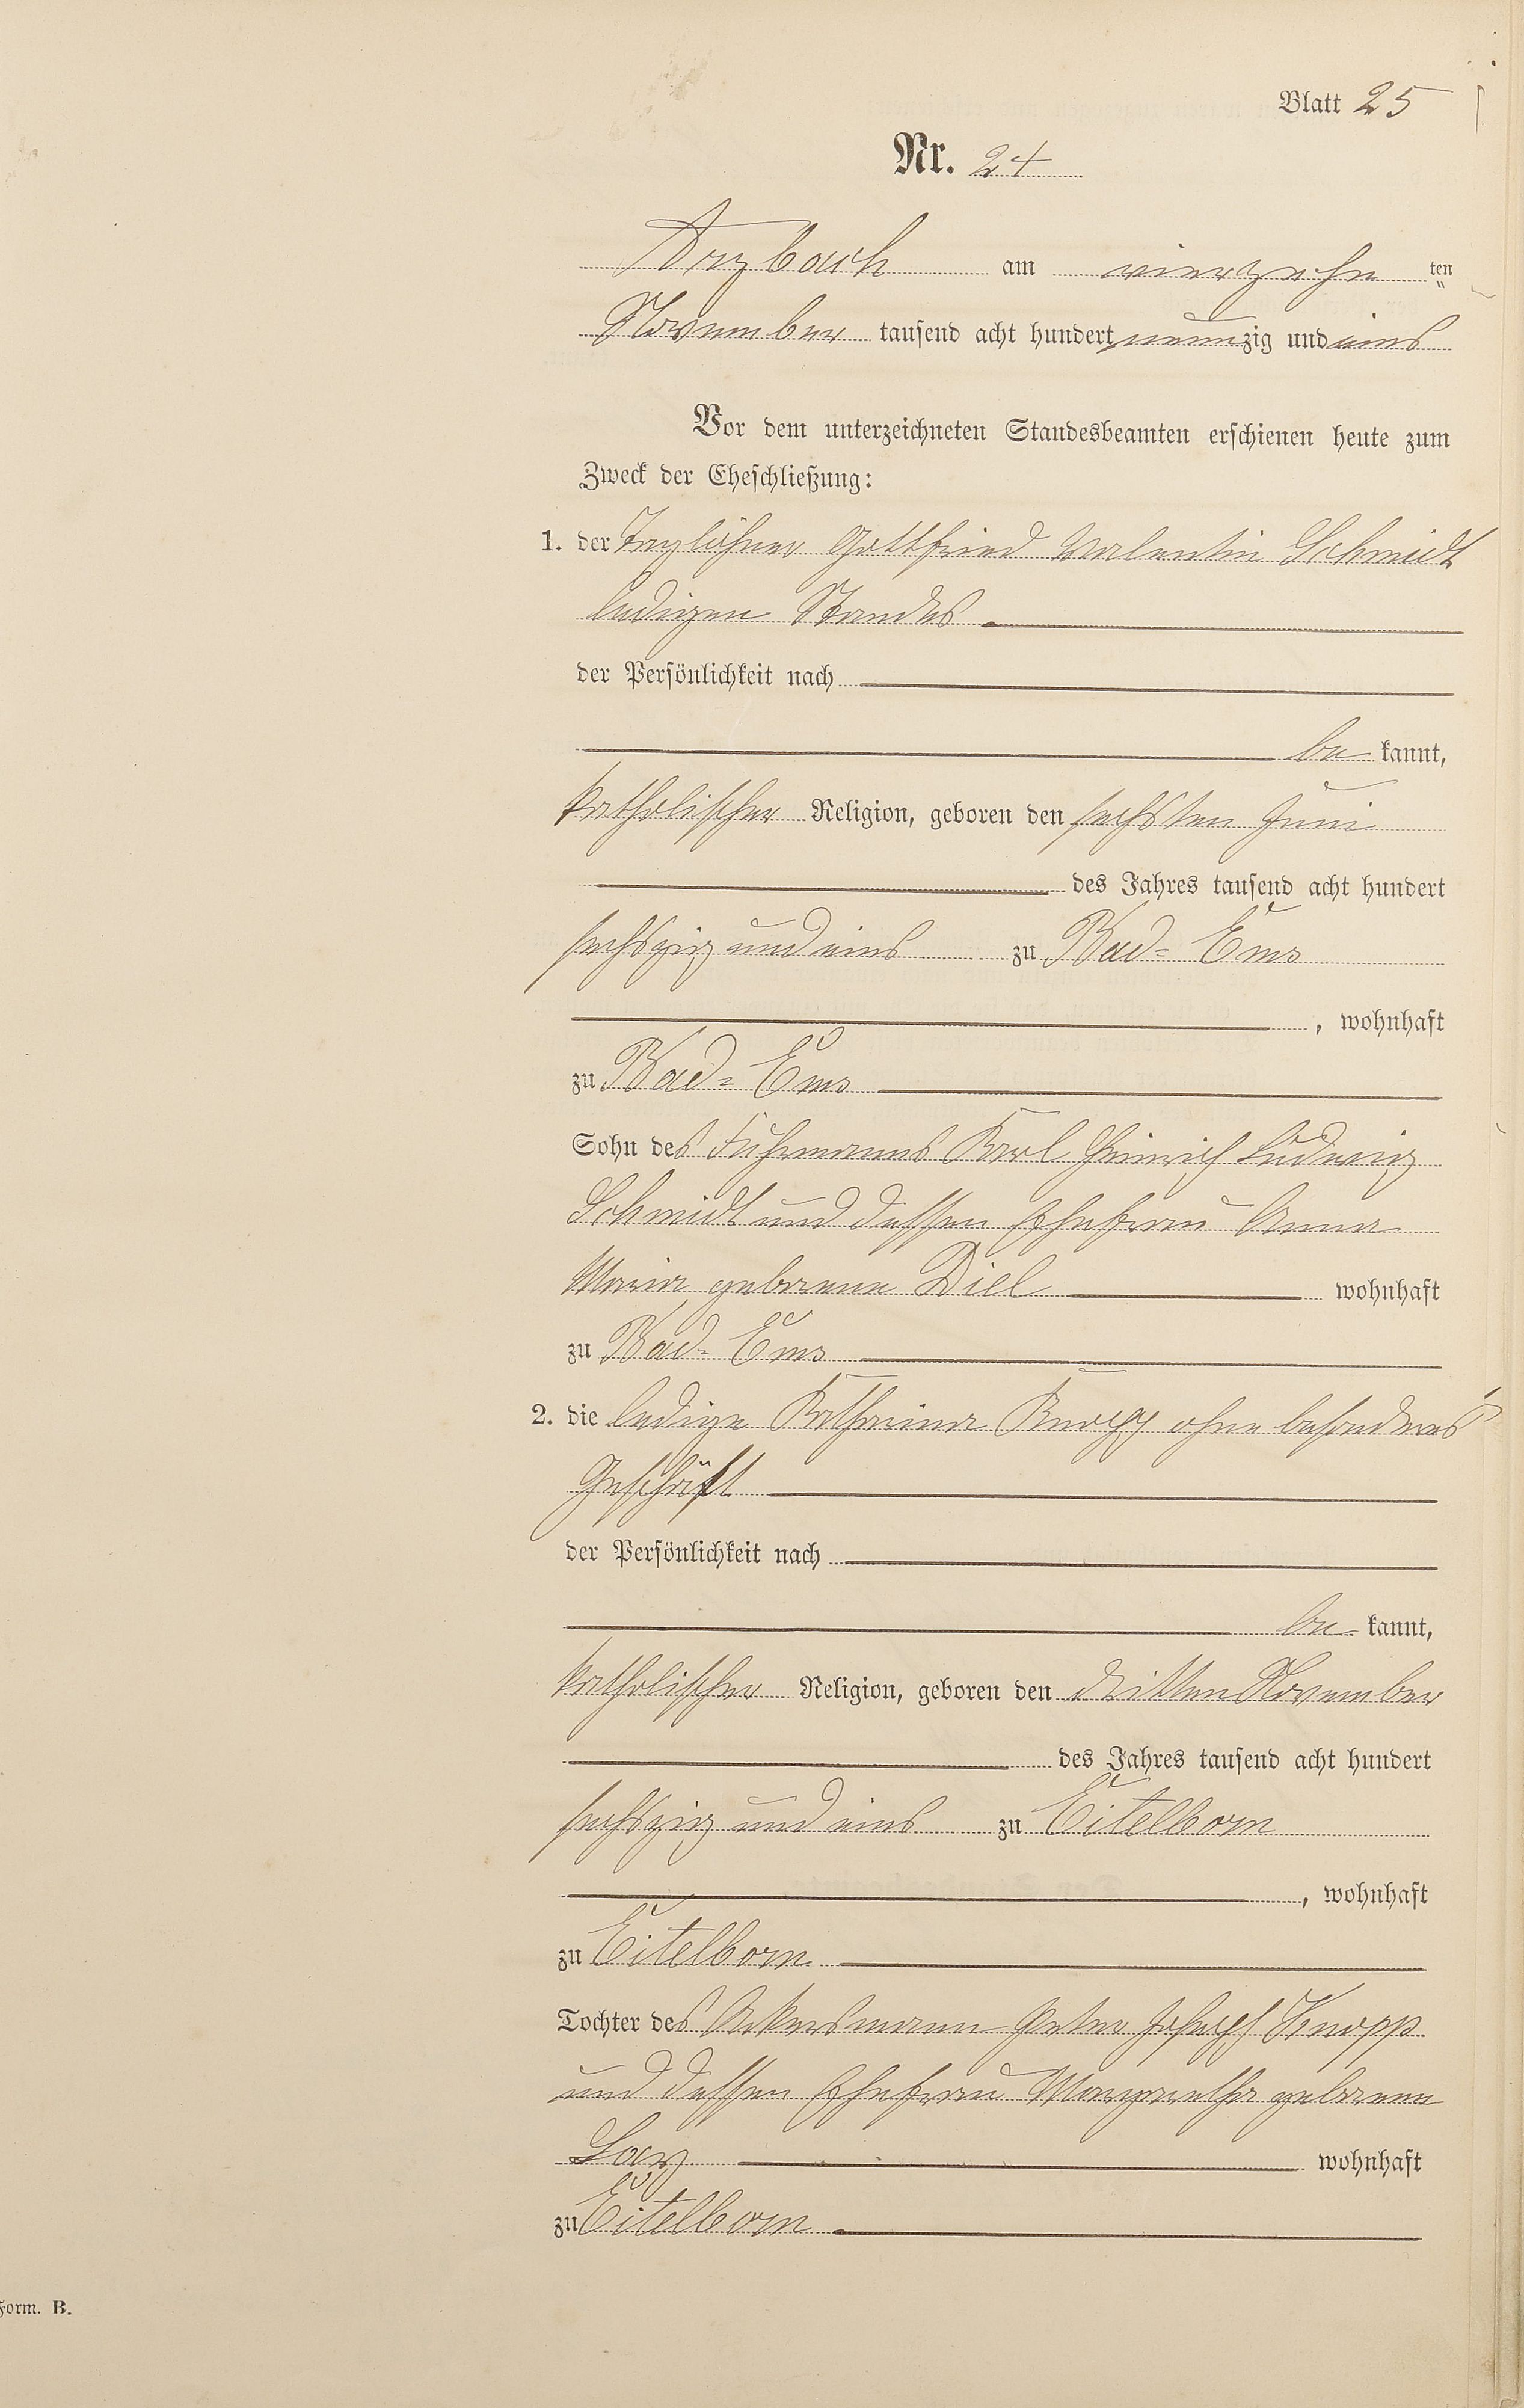 Blatt 25
Nr. 24
Arzbach am vierzehn ten
November tausend acht hundert neunzig und eins
Vor dem unterzeichneten Standesbeamten erschienen heute zum
Zweck der Eheschließung:
1. der Taglöhner Gottfried Valentin Schmidt
ledigen Standes
der Persönlichkeit nach
be kannt,
katholischer Religion, geboren den sechsten Juni
des Jahres tausend acht hundert
sechszig und eins zu Bad-Ems
, wohnhaft
zu Bad-Ems
Sohn des Fuhrmanns Karl Heinrich Ludwig
Schmidt und dessen Ehefrau Anna
Maria geborene Diel wohnhaft
zu Bad-Ems
2. die ledige Katharina Knopp ohne besonderes
Geschäft
der Persönlichkeit nach
be kannt,
katholischer Religion, geboren den dritten November
des Jahres tausend acht hundert
sechszig und eins zu Eitelborn
, wohnhaft
zu Eitelborn
Tochter des Ackersmann Peter Joseph Knopp
und dessen Ehefrau Margaretha geborene
wohnhaft
zu Eitelborn
Form. B.